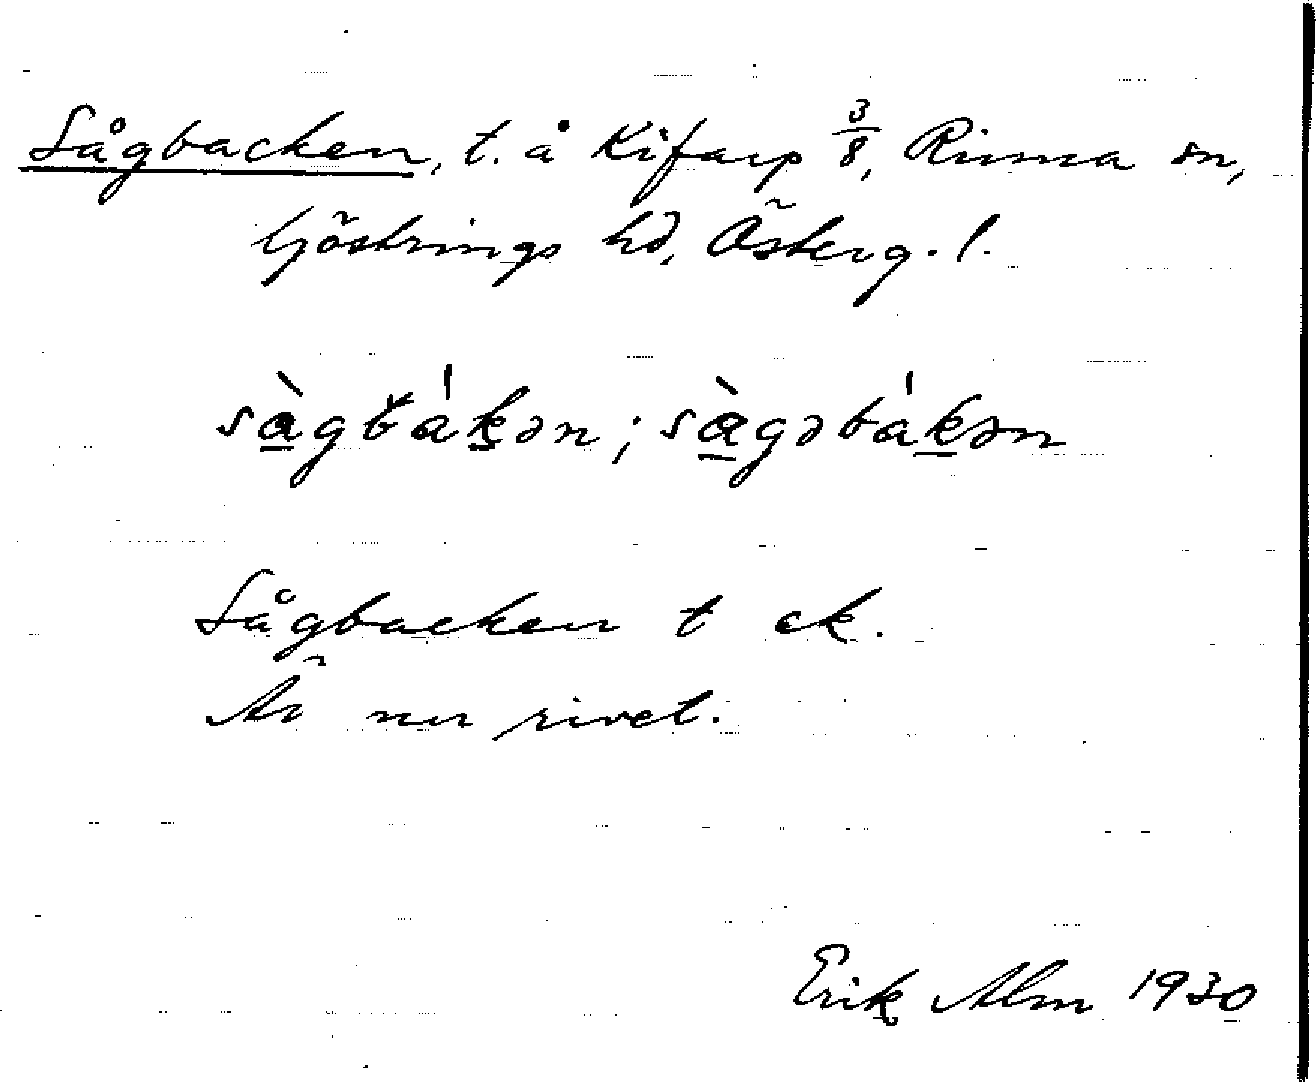 Sågbacken, t. å Kifarp 3/8, Rinna sn,
Göstrings hd, Österg. l.
sàgbákən; sàgəbákən
Sågbacken t ek.
Är nu rivet.
Erik Alm 1930